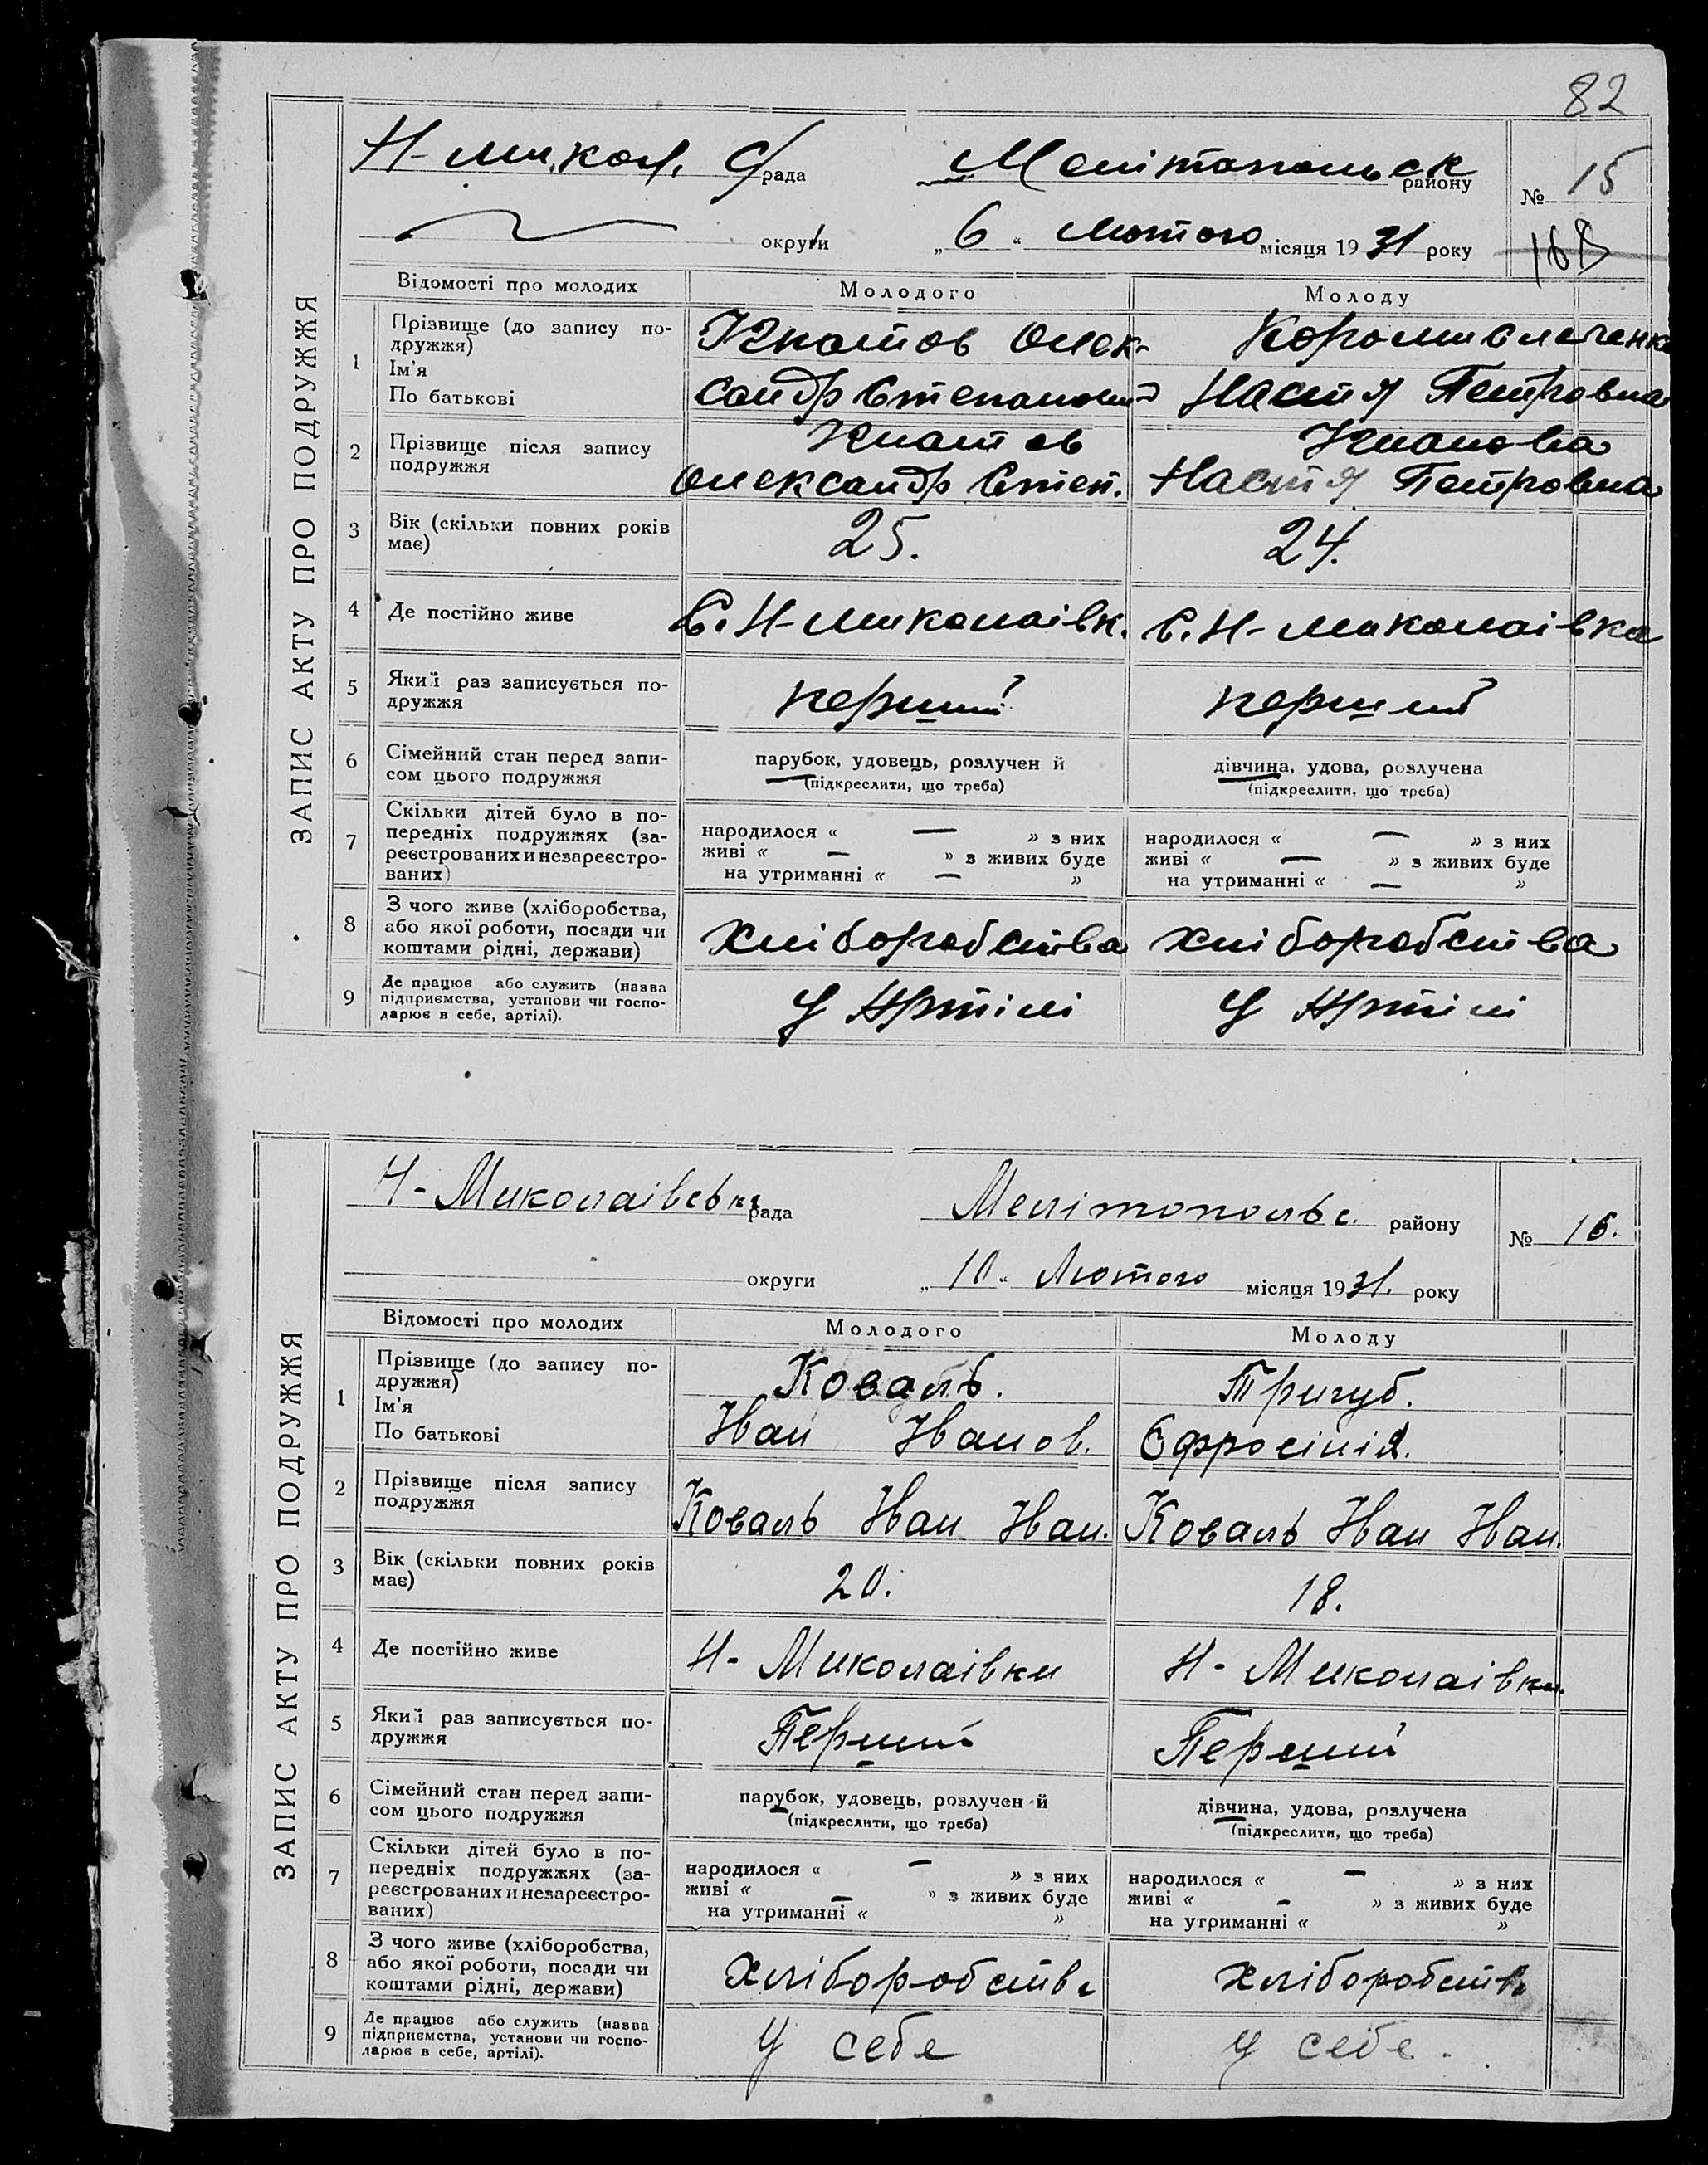 82
ЗАПИС АКТУ ПРО ПОДРУЖЖЯ
Н-микол. С/рада Мелітопольск району № 15
округи „6“ Лютого місяця 1931 року
Відомості про молодих Молодого Молоду
1 Прізвище (до запису подружжя)
Ім'я
По батькові
Ігнатов Олек-
сандр Степанович
Коромисличенко
Настя Петровна
2 Прізвище після запису подружжя
Ігнатов
Олександр Степ.
Настя Петровна
3 Вік (скільки повних років має) 25. 24.
4 Де постійно живе С. Н-миколаівк. С. Н-миколаівка
5 Який раз записується подружжя перший перший
6 Сімейний стан перед записом цього подружжя
парубок, удовець, розлучен й
(підкреслити, що треба)
дівчина, удова, розлучена
(підкреслити, що треба)
7 Скільки дітей було в попередніх подружжях (зареєстрованих и незареєстрованих)
народилося « — » з них
живі « — » з живих буде
на утриманні « — »
народилося « — » з них
живі « — » з живих буде
на утриманні « — »
8 З чого живе (хліборобства, або якої роботи, посади чи коштами рідні, держави) хліборобства хліборобства
9 Де працює або служить (назва підприємства, установи чи господарює в себе, артілі). У Артілі У Артілі
ЗАПИС АКТУ ПРО ПОДРУЖЖЯ
Н-Миколаівська рада Мелітопольс. району № 16.
округи „10“ Лютого місяця 1931. року
Відомості про молодих Молодого Молоду
1 Прізвище (до запису подружжя)
Ім'я
По батькові
Коваль.
Иван Иванов.
Тригуб.
Єфросінія.
2 Прізвище після запису подружжя Коваль Иван Иван. Коваль Иван Иван.
3 Вік (скільки повних років має) 20. 18.
4 Де постійно живе Н-Миколаівки Н-Миколаівки.
5 Який раз записується подружжя Перший Перший
6 Сімейний стан перед записом цього подружжя
парубок, удовець, розлучен й
(підкреслити, що треба)
дівчина, удова, розлучена
(підкреслити, що треба)
7 Скільки дітей було в попередніх подружжях (зареєстрованих и незареєстрованих)
народилося « — » з них
живі « — » з живих буде
на утриманні « »
народилося « — » з них
живі « — » з живих буде
на утриманні « »
8 З чого живе (хліборобства, або якої роботи, посади чи коштами рідні, держави) хліборобства хліборобства
9 Де працює або служить (назва підприємства, установи чи господарює в себе, артілі). У себе У себе.